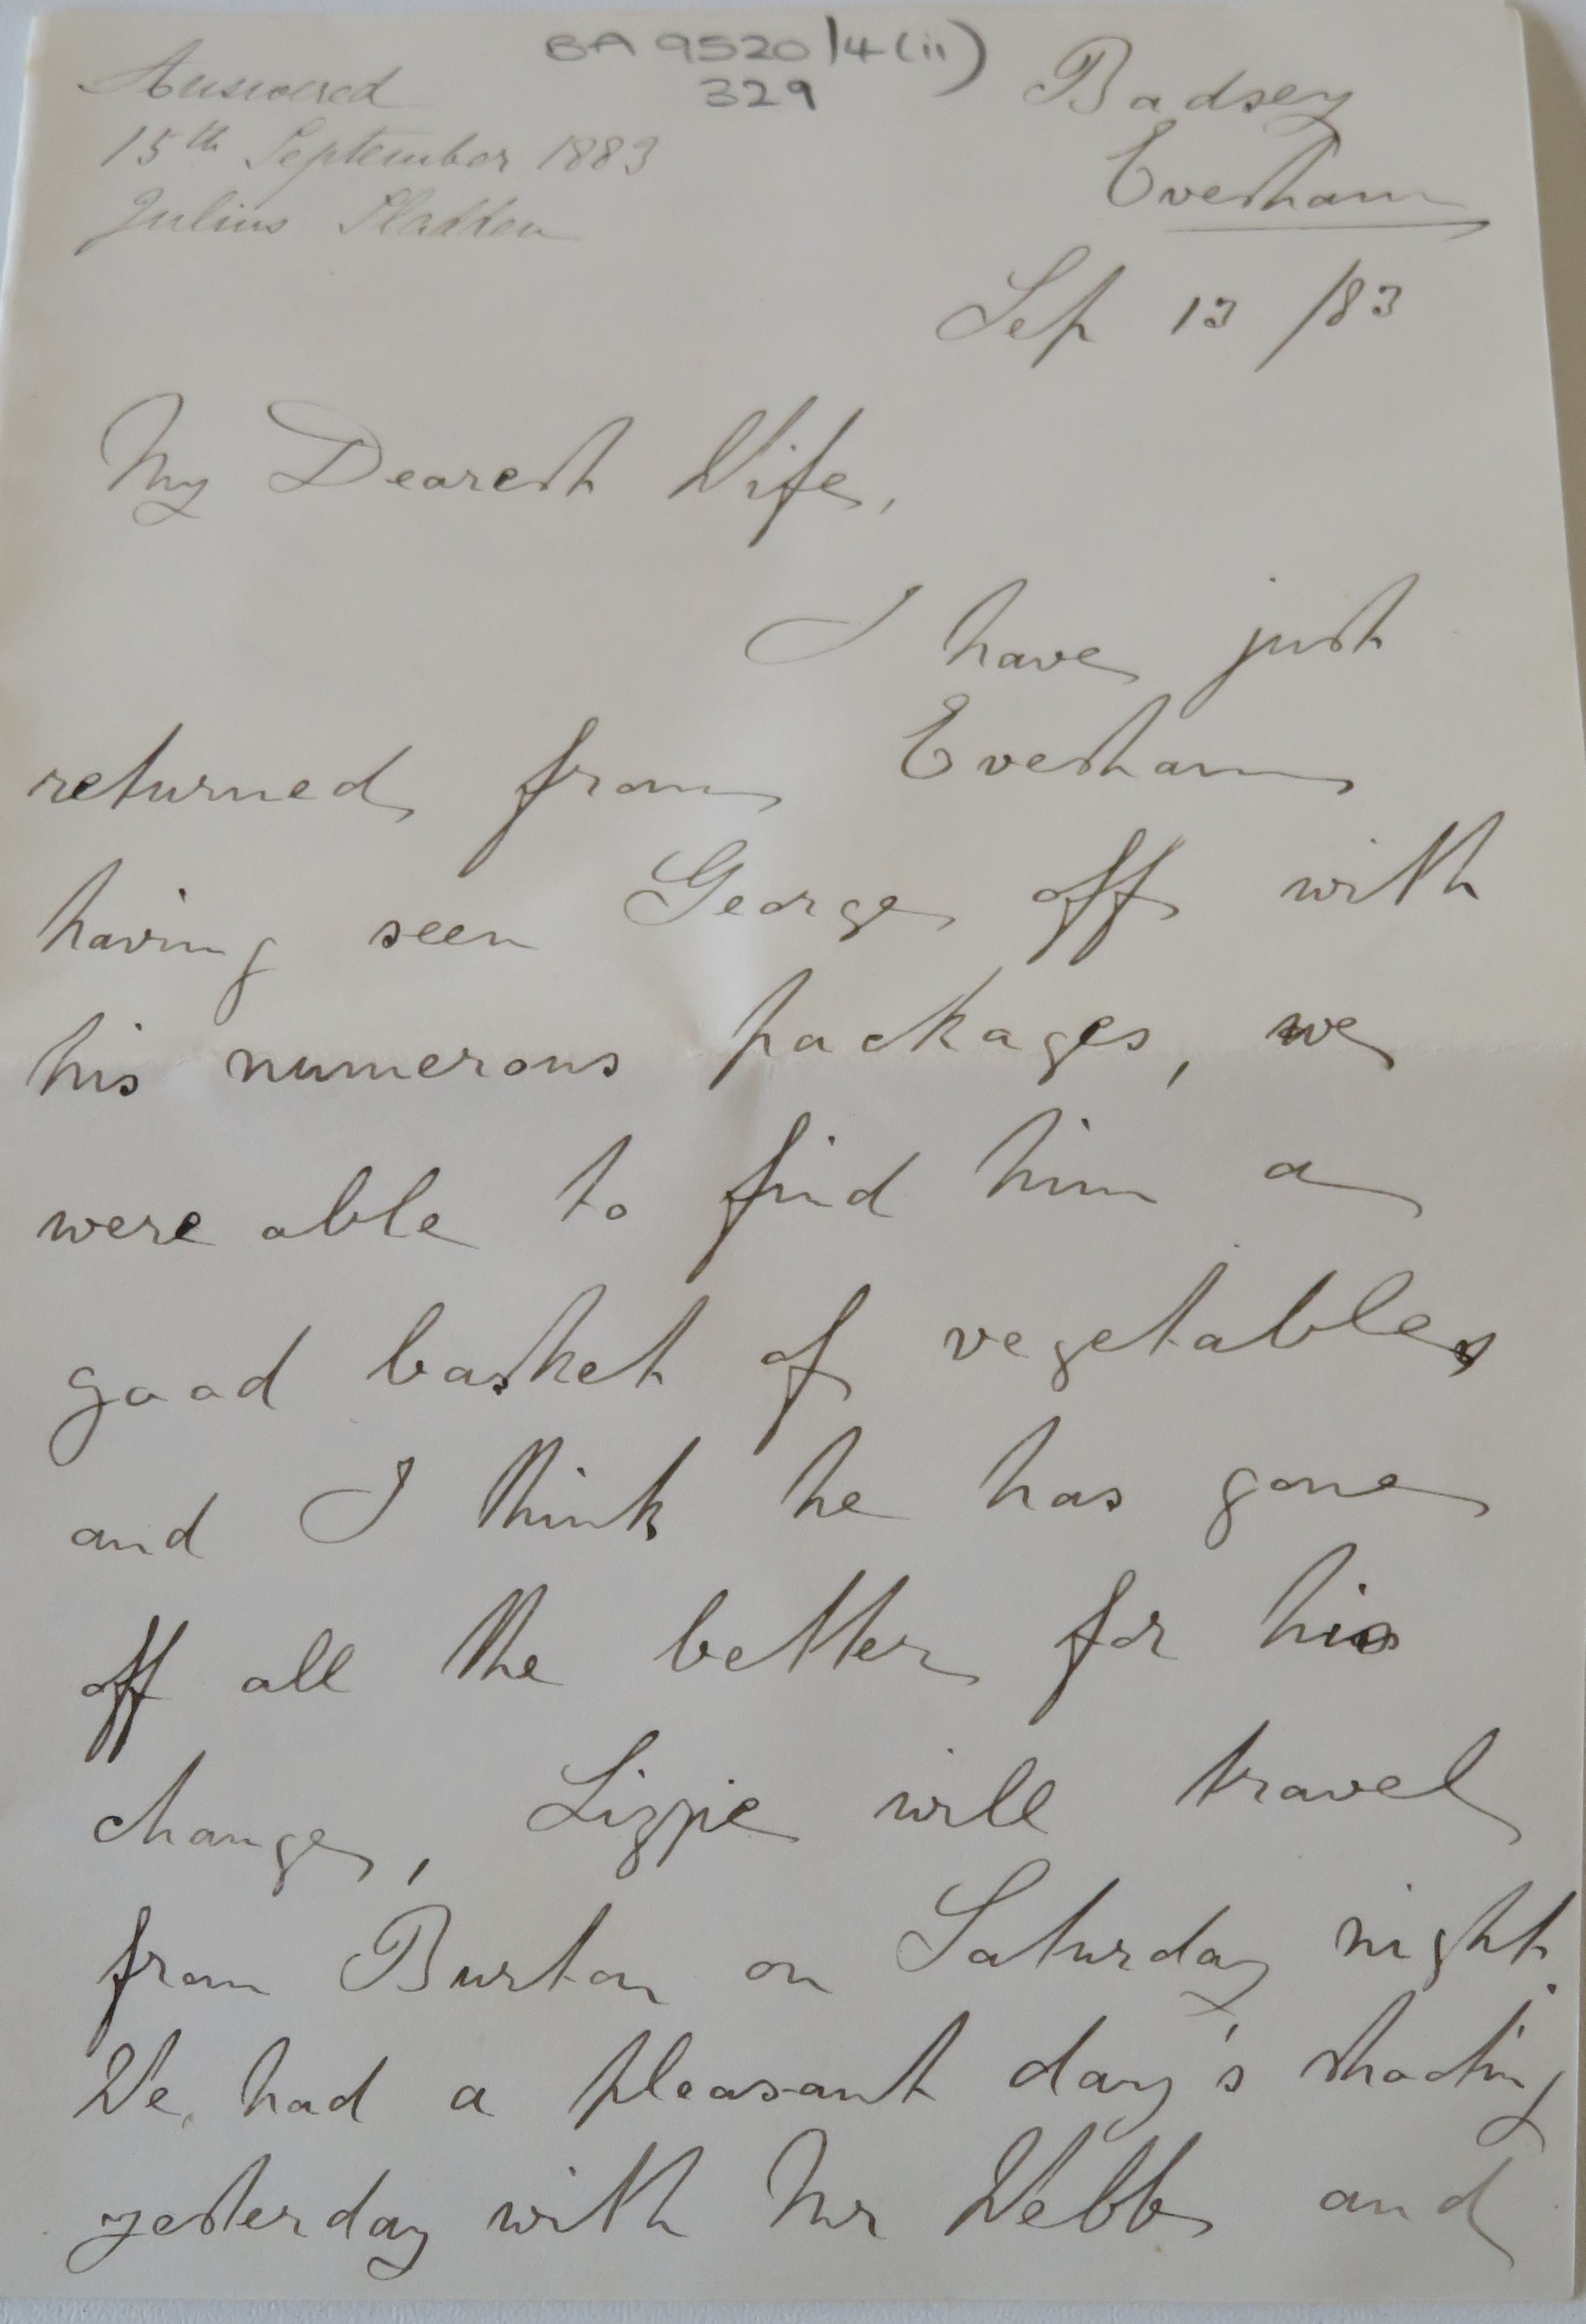 BA 9520/4(ii)
329
Answered
15th September 1883
Julius Sladden
Badsey
Evesham
Sep 13 /83
My Dearest Wife,
I have just
returned from Evesham
having seen George off with
his numerous packages, we
were able to find him a
good basket of vegetables
and I think he has gone
off all the better for his
change, Lizzie will travel
from Burton on Saturday night.
We had a pleasant day's shooting
yesterday with Mr Webb and